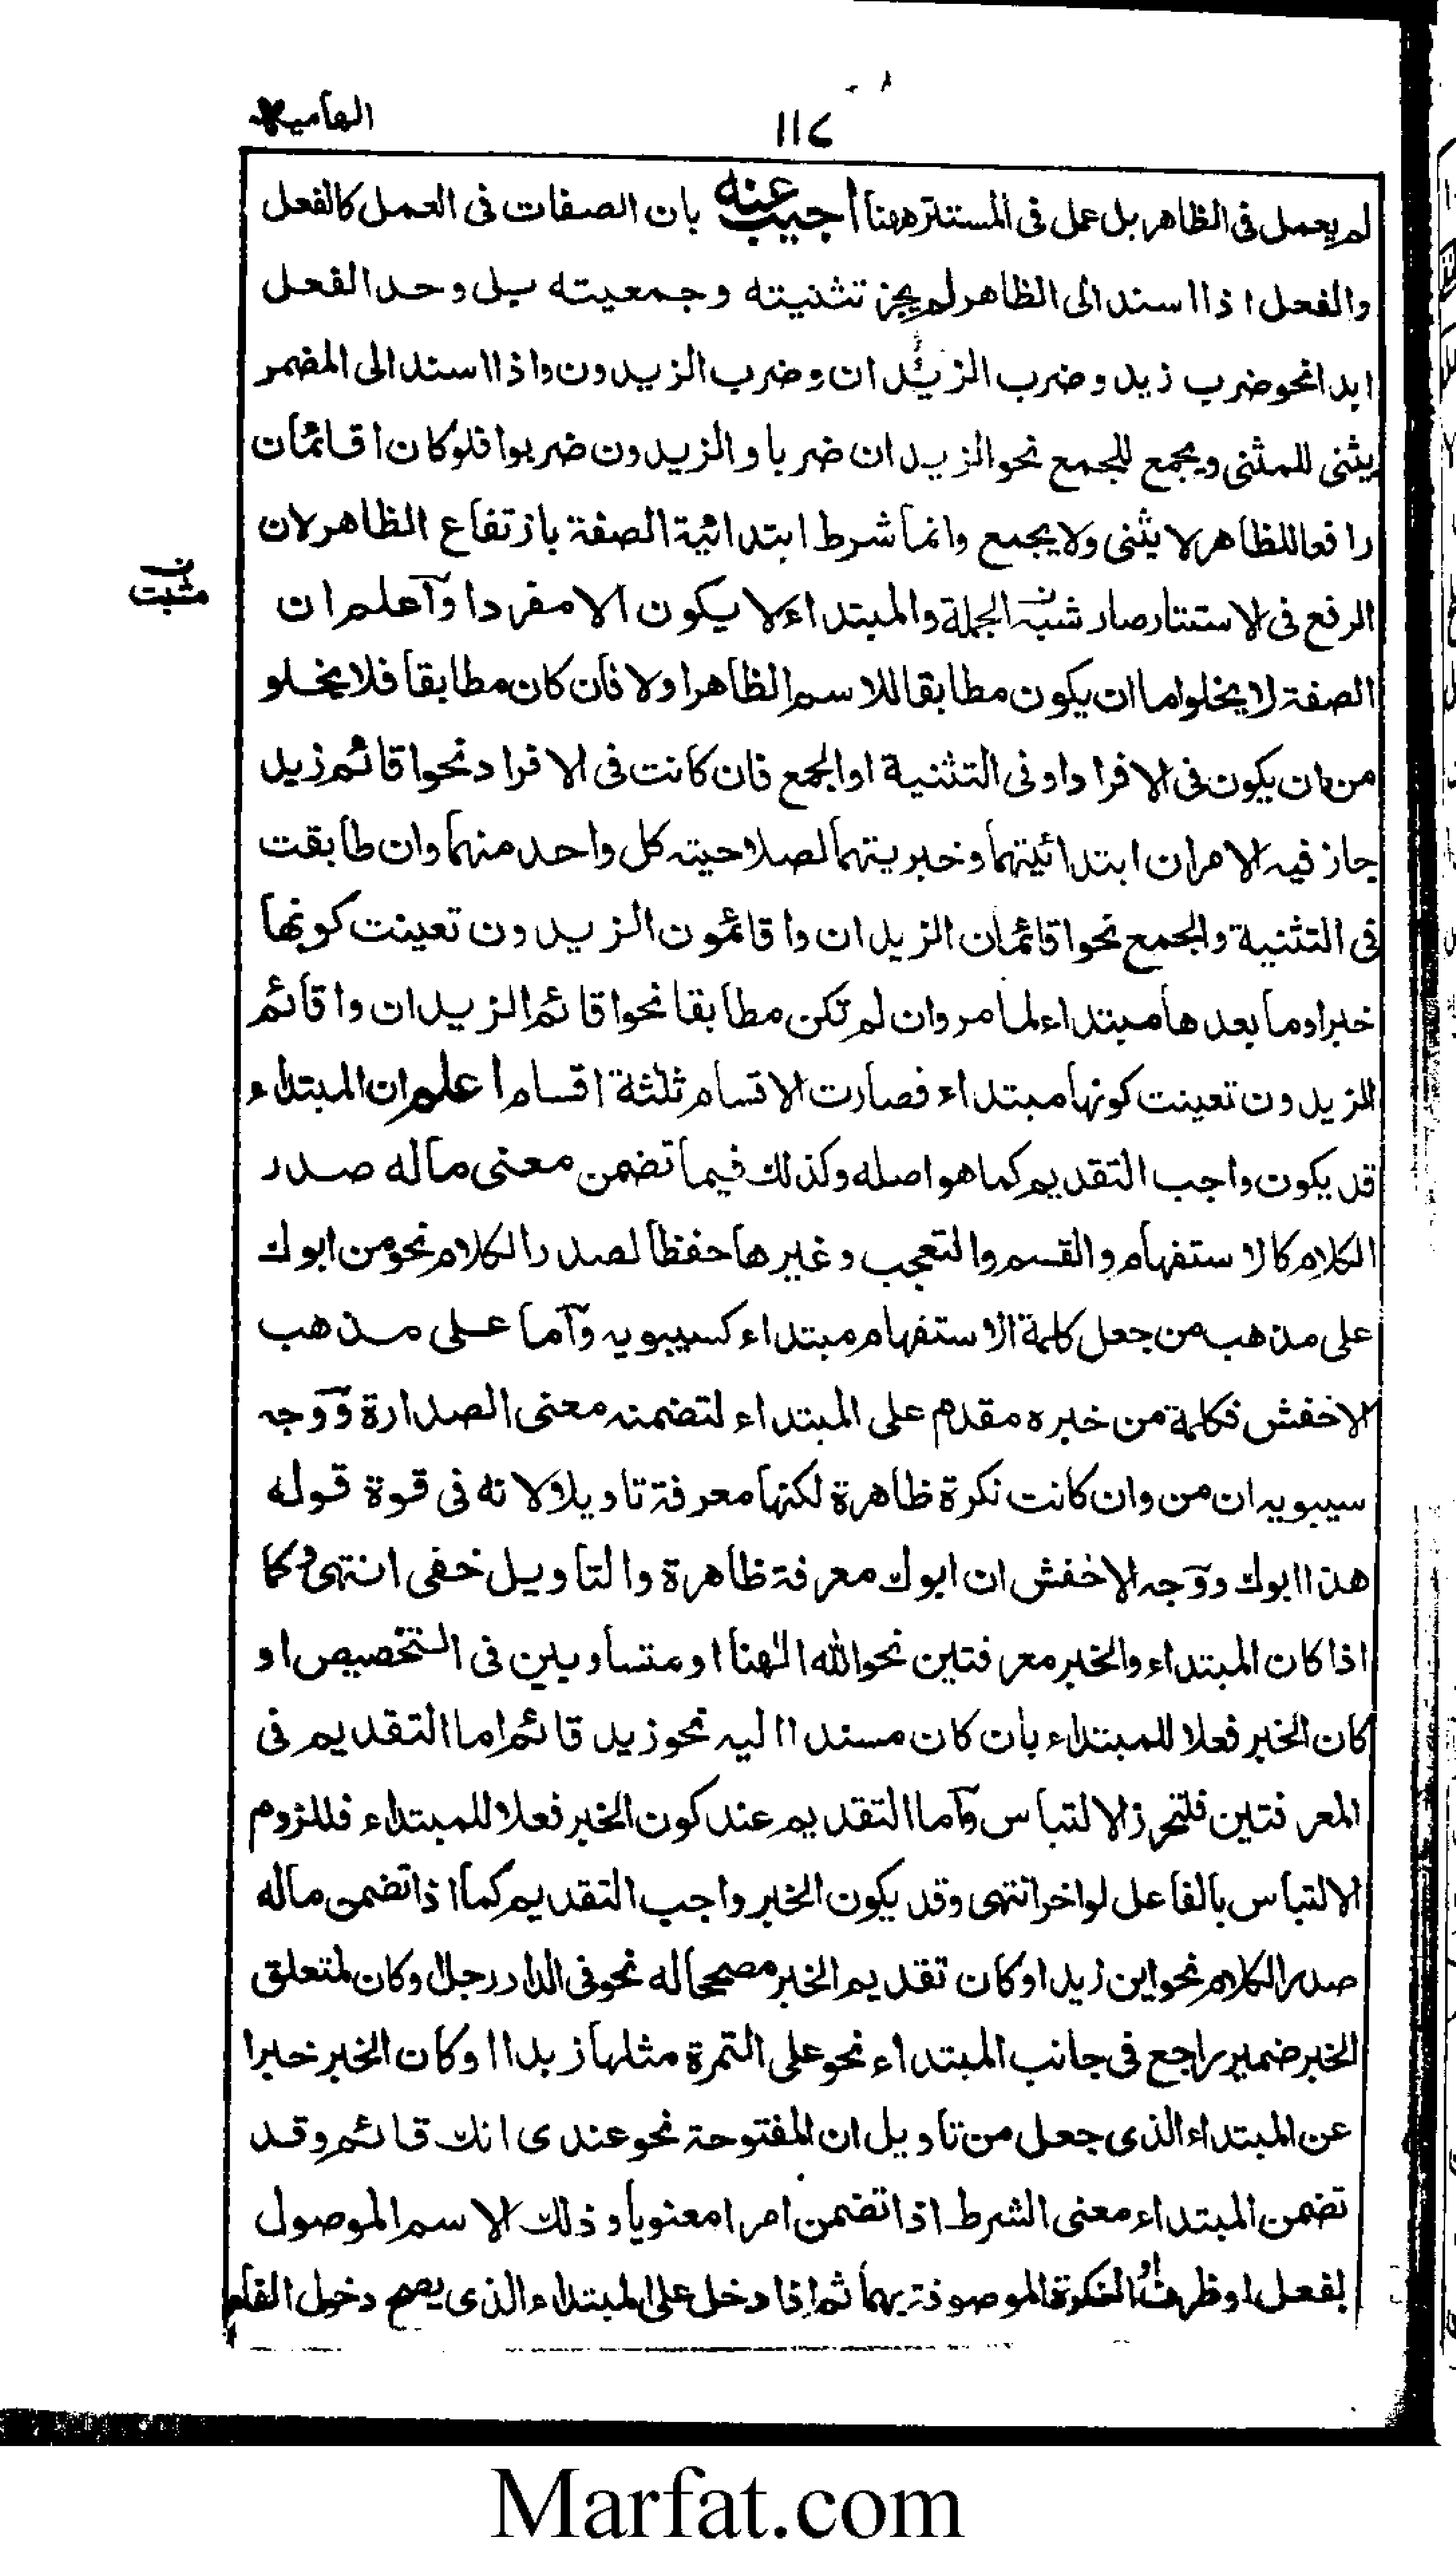 الهامية
١١٧
لم يعمل فى الظاهر بل عمل فى المستتر ههنا اجيب عنه بان الصفات فى العمل كالفعل
والفعل اذا اسند الى الظاهر لم يجز تثنيته وجمعيته بل وحد الفعل
ابدا نحو ضرب زيد وضرب الزيدان وضرب الزيدون واذا اسند الى المضمر
يثنى للمثنى ويجمع للجمع نحو الزيدان ضربا والزيدون ضربوا فلو كان اقائمان
رافعا للظاهر لا يثنى ولا يجمع وانما شرط ابتدائية الصفة بارتفاع الظاهر لان
الرفع فى الاستتار صار شبه الجملة والمبتداء لا يكون الا مفردا وآعلم ان
مثبت
الصفة لا يخلو اما ان يكون مطابقا للاسم الظاهر اولا فان كان مطابقا فلا يخلو
من ان يكون فى الافراد او فى التثنية او الجمع فان كانت فى الافراد نحو اقائم زيد
جاز فيه الامران ابتدائيتهما وخبريتهما لصلاحيته كل واحد منهما وان طابقت
فى التثنية والجمع نحو اقائمان الزيدان و اقائمون الزيدون تعينت كونها
خبرا وما بعدها مبتداء لما مر وان لم تكن مطابقا نحو اقائم الزيدان و اقائم
الزيدون تعينت كونها مبتداء فصارت الاقسام ثلثة اقسام اعلم ان المبتداء
قد يكون واجب التقديم كما هو اصله وكذلك فيما تضمن معنى ماله صدر
الكلام كالاستفهام والقسم والتعجب وغيرها حفظا لصدر الكلام نحو من ابوك
على مذهب من جعل كلمة الاستفهام مبتداء كسيبويه وآما على مذهب
الاخفش فكلمة من خبره مقدم على المبتداء لتضمنه معنى الصدارة ووجه
سيبويه ان من وان كانت نكرة ظاهرة لكنها معرفة تاويلا لانه فى قوة قوله
هذا ابوك ووجه الاخفش ان ابوك معرفة ظاهرة والتاويل خفى انتهى وكما
اذا كان المبتداء والخبر معرفتين نحو الله الٰهنا او متساويين فى التخصيص او
كان الخبر فعلا للمبتداء بان كان مسندا اليه نحو زيد قائم اما التقديم فى
المعرفتين فلتحرز الالتباس وآما التقديم عند كون الخبر فعلا للمبتداء فللزوم
الالتباس بالفاعل لو اخر انتهى وقد يكون الخبر واجب التقديم كما اذا تضمن ماله
صدر الكلام نحو اين زيد او كان تقديم الخبر مصححا له نحو فى الدار رجل او كان لمتعلق
الخبر ضمير راجع فى جانب المبتداء نحو على التمرة مثلها زبدا او كان الخبر خبرا
عن المبتداء الذى جعل من تاويل ان المفتوحة نحو عندى انك قائم وقد
تضمن المبتداء معنى الشرط اذا تضمن امرا معنويا وذلك الاسم الموصول
بفعل او ظرف او النكرة الموصوفة بهما ثم اذا دخل على المبتداء الذى يصح دخول الفاء
Marfat.com